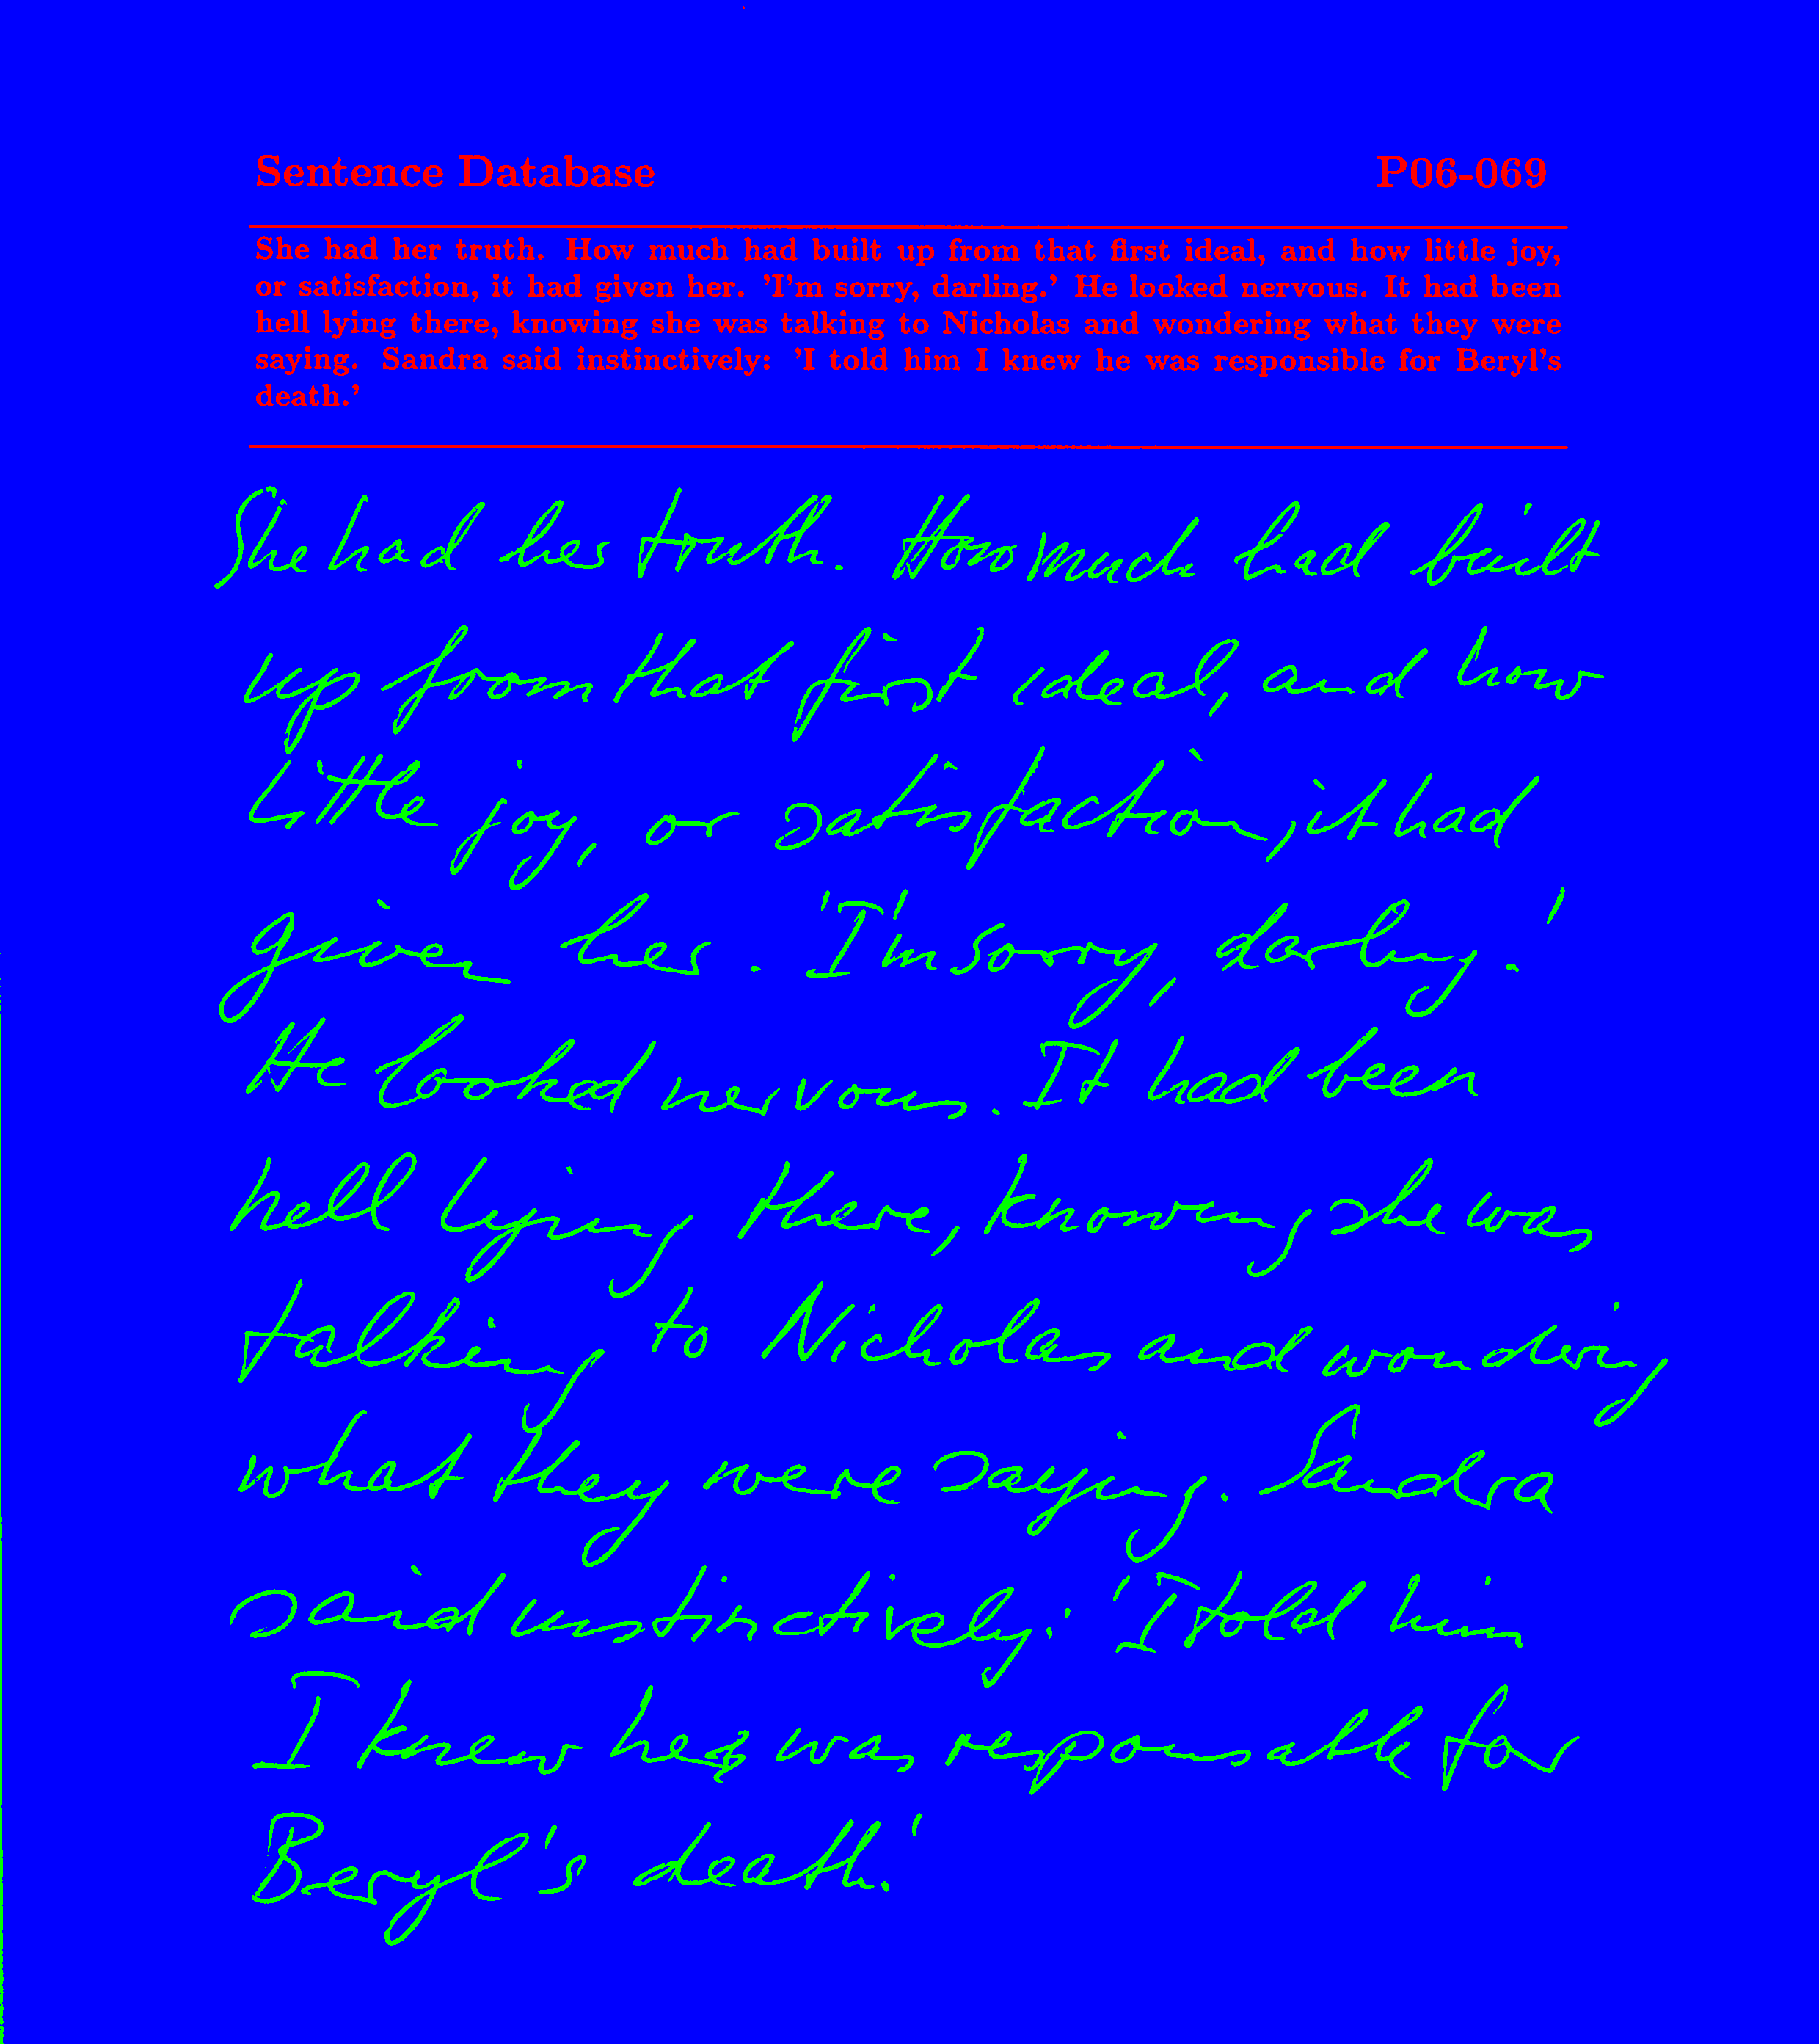 Sentence Database P06-069
She had her truth. How much had built up from that first ideal, and how little joy,
or satisfaction, it had given her. 'I'm sorry, darling.' He looked nervous. It had been
hell lying there, knowing she was talking to Nicholas and wondering what they were
saying. Sandra said instinctively: 'I told him I knew he was responsible for Beryl's
death.'
She had her truth. How much had built
up from that first ideal, and how
little joy, or satisfaction, it had
given her. 'I'm sorry, darling.'
He looked nervous. It had been
hell lying there, knowing she was
talking to Nicholas and wondering
what they were saying. Sandra
said instinctively: 'I told him
I knew he was responsable for
Beryl's death.'